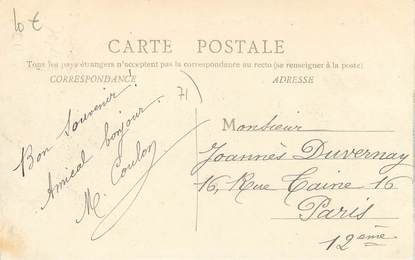 10 €
CARTE POSTALE
Tous les pays étrangers n'acceptent pas la correspondance au recto (se renseigner à la poste)
CORRESPONDANCE
ADRESSE
71
Bon Souvenir!
Amical bonjour.
M. Coulon
Monsieur
Joannès Duvernay
16, Rue Taine 16
Paris
12ème